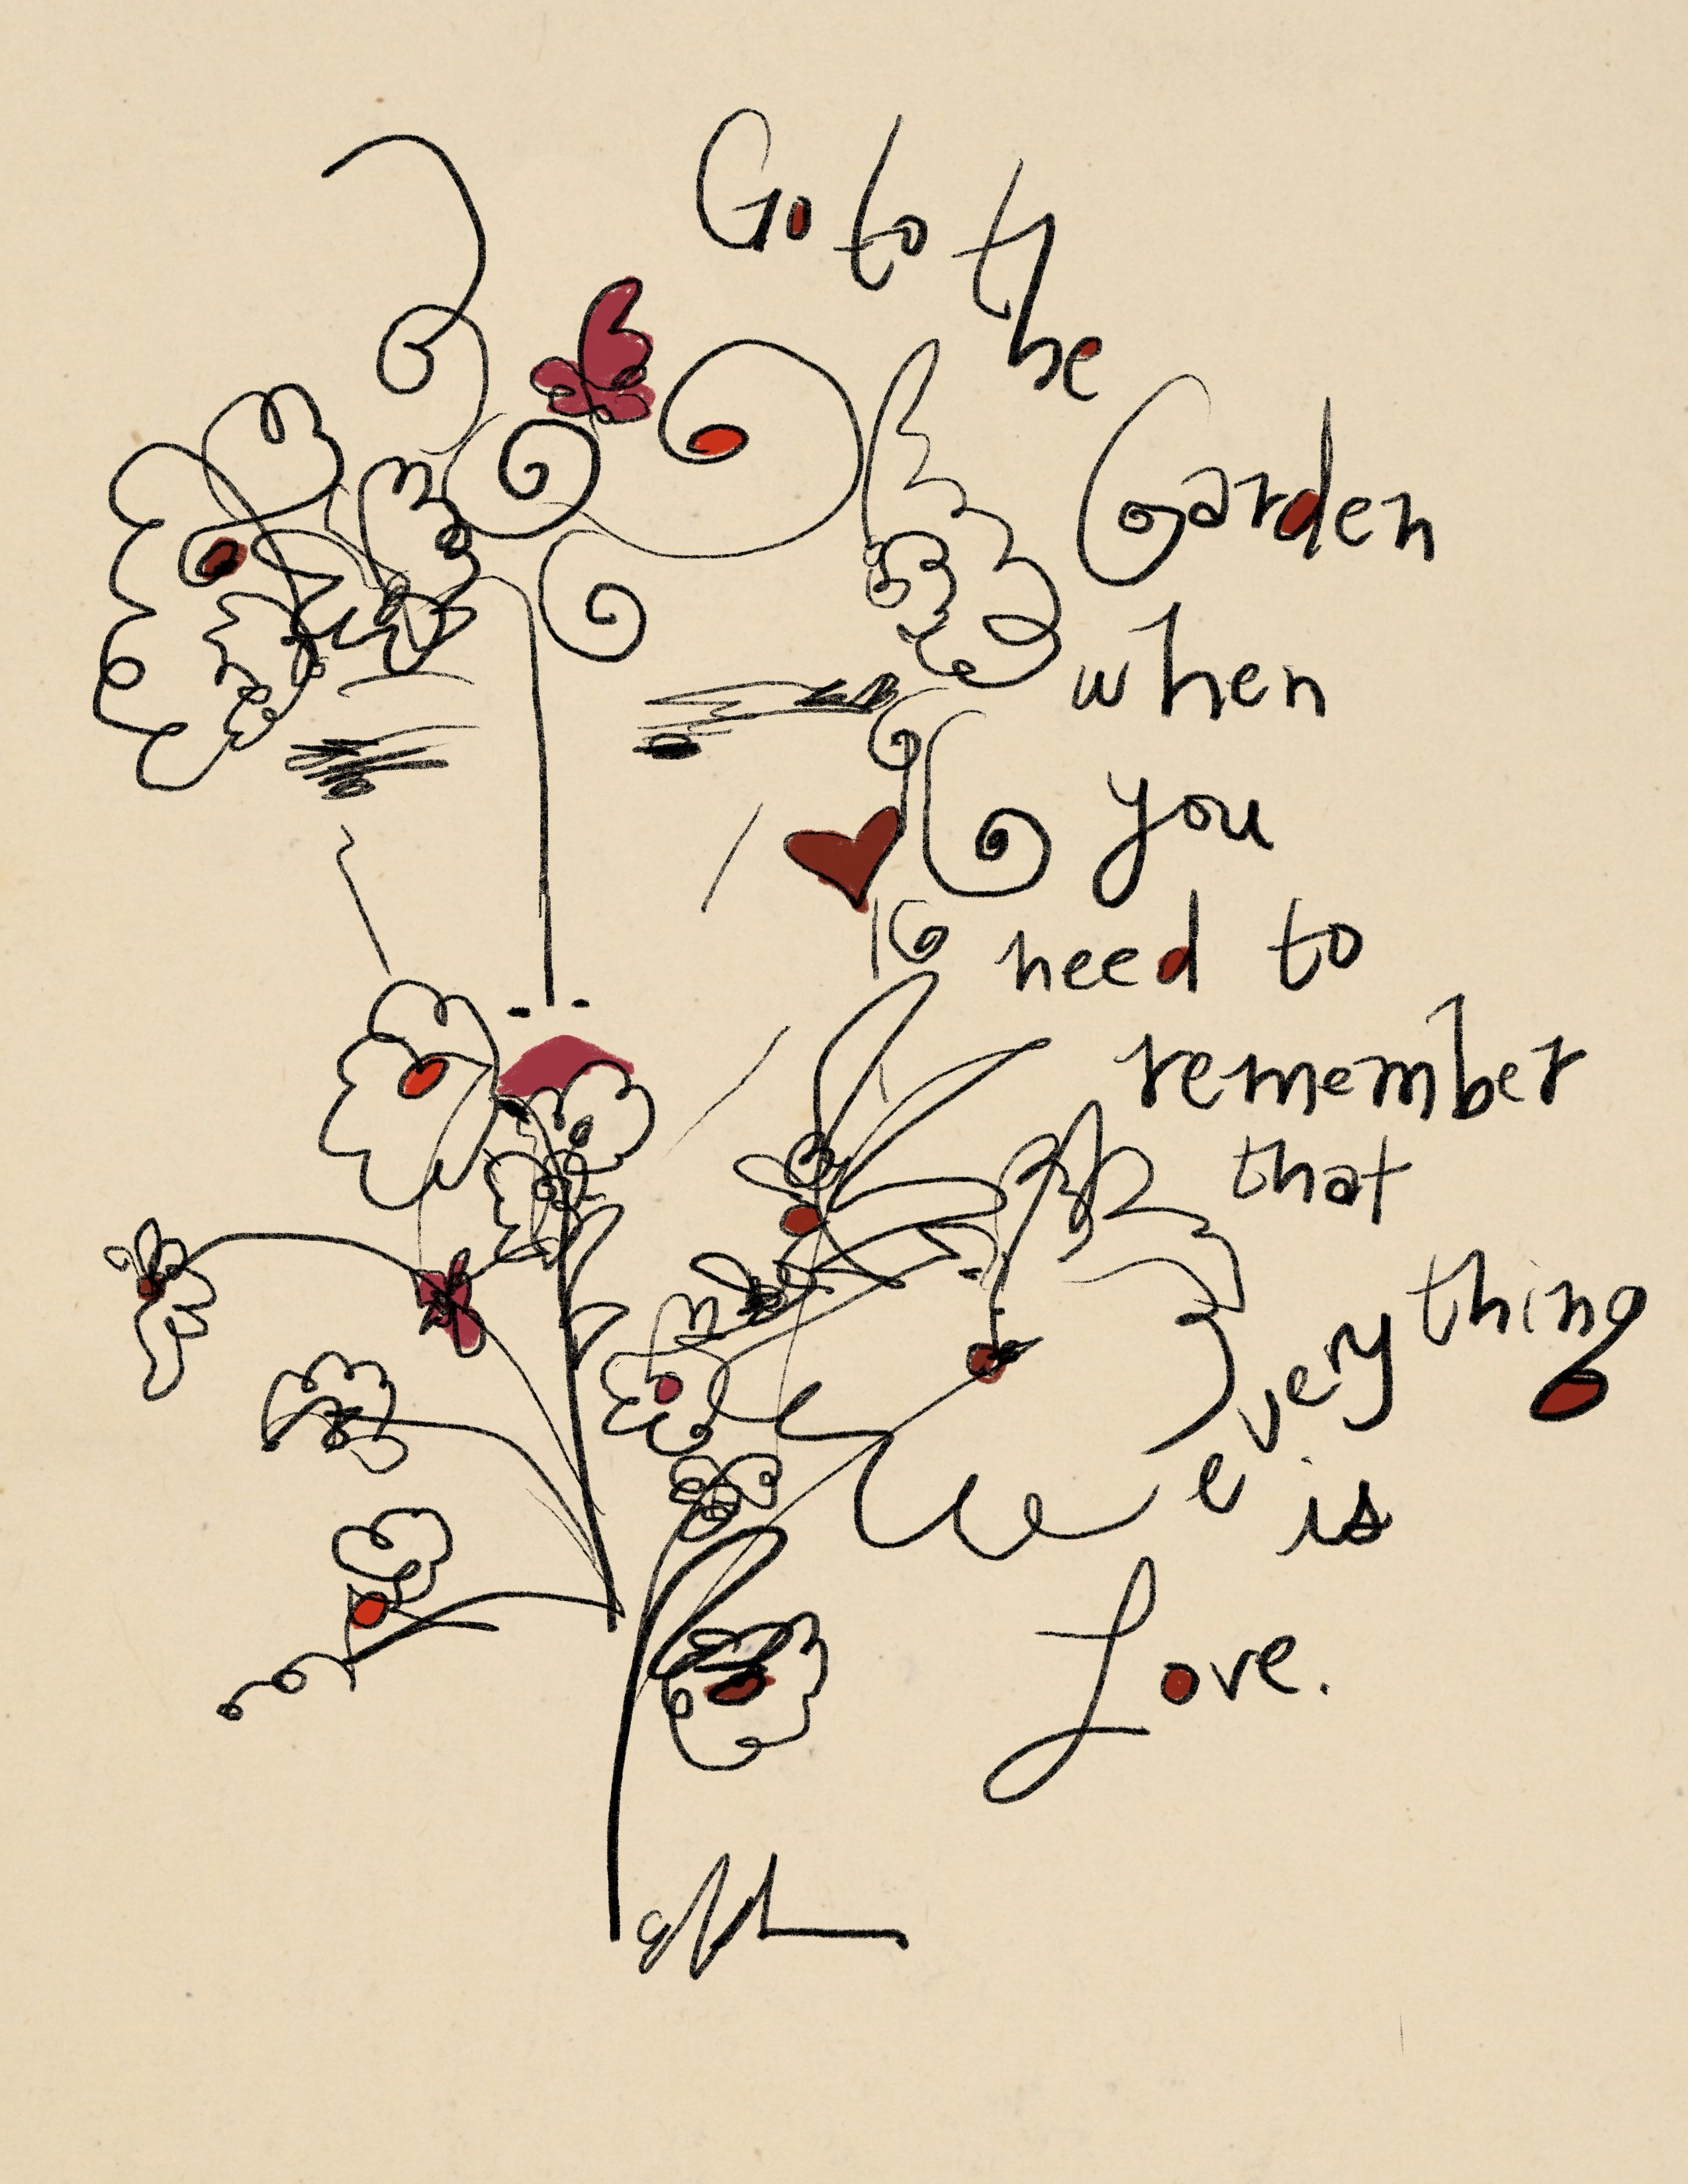 Go to the
Garden
when
you
need to
remember
that
everything
is
Love.